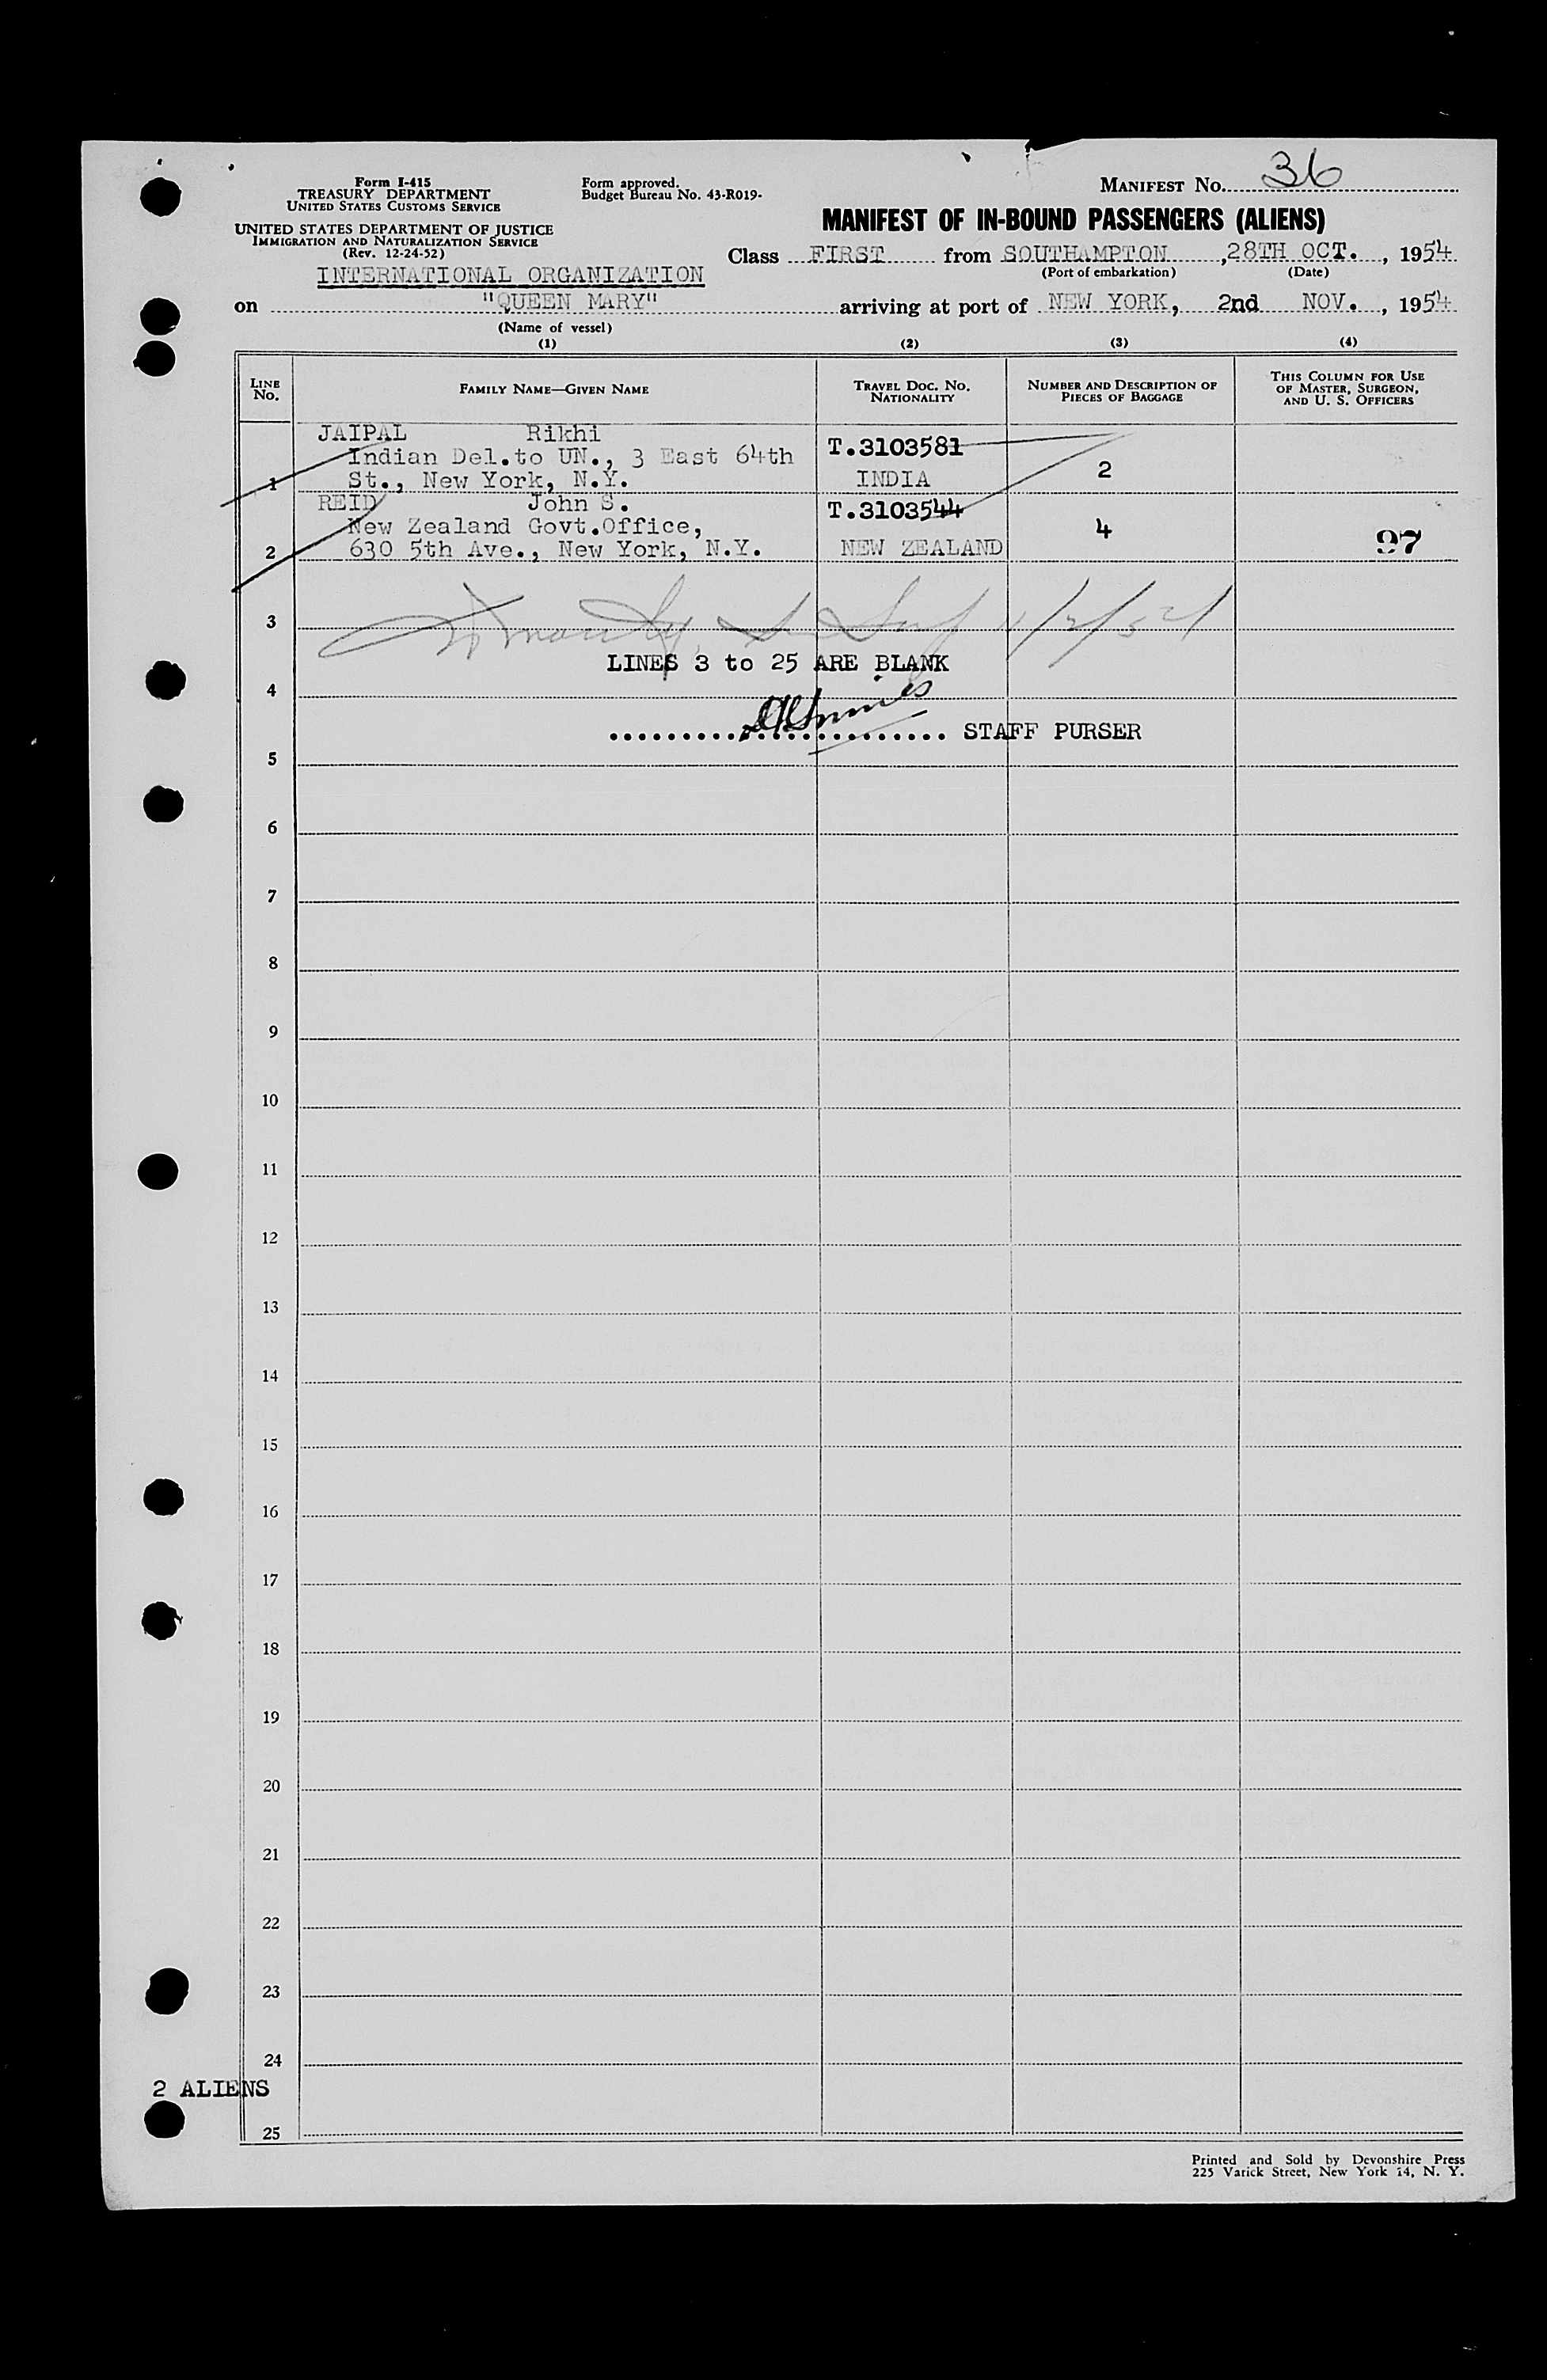 Form I-415
TREASURY DEPARTMENT
UNITED STATES CUSTOMS SERVICE
UNITED STATES DEPARTMENT OF JUSTICE
IMMIGRATION AND NATURALIZATION SERVICE
(Rev. 12-24-52)
Form approved.
Budget Bureau No. 43-R019-
MANIFEST NO. 36
MANIFEST OF IN-BOUND PASSENGERS (ALIENS)
Class FIRST from SOUTHAMPTON, 28TH OCT., 1954
(Port of embarkation) (Date)
INTERNATIONAL ORGANIZATION
on "QUEEN MARY" arriving at port of NEW YORK, 2nd NOV., 1954
(Name of vessel)
(1) (2) (3) (4)
LINE NO.
FAMILY NAME—GIVEN NAME
TRAVEL DOC. NO.
NATIONALITY
NUMBER AND DESCRIPTION OF
PIECES OF BAGGAGE
THIS COLUMN FOR USE
OF MASTER, SURGEON,
AND U. S. OFFICERS
JAIPAL Rikhi
Indian Del.to UN., 3 East 64th
1 St., New York, N.Y.
T.3103581
INDIA
2
REID John S.
New Zealand Govt.Office,
2 630 5th Ave., New York, N.Y.
T.3103544
NEW ZEALAND
4
97
3
11/2/54
LINES 3 to 25 ARE BLANK
4
STAFF PURSER
5
6
7
8
9
10
11
12
13
14
15
16
17
18
19
20
21
22
23
24
2 ALIENS
25
Printed and Sold by Devonshire Press
225 Varick Street, New York 14, N. Y.